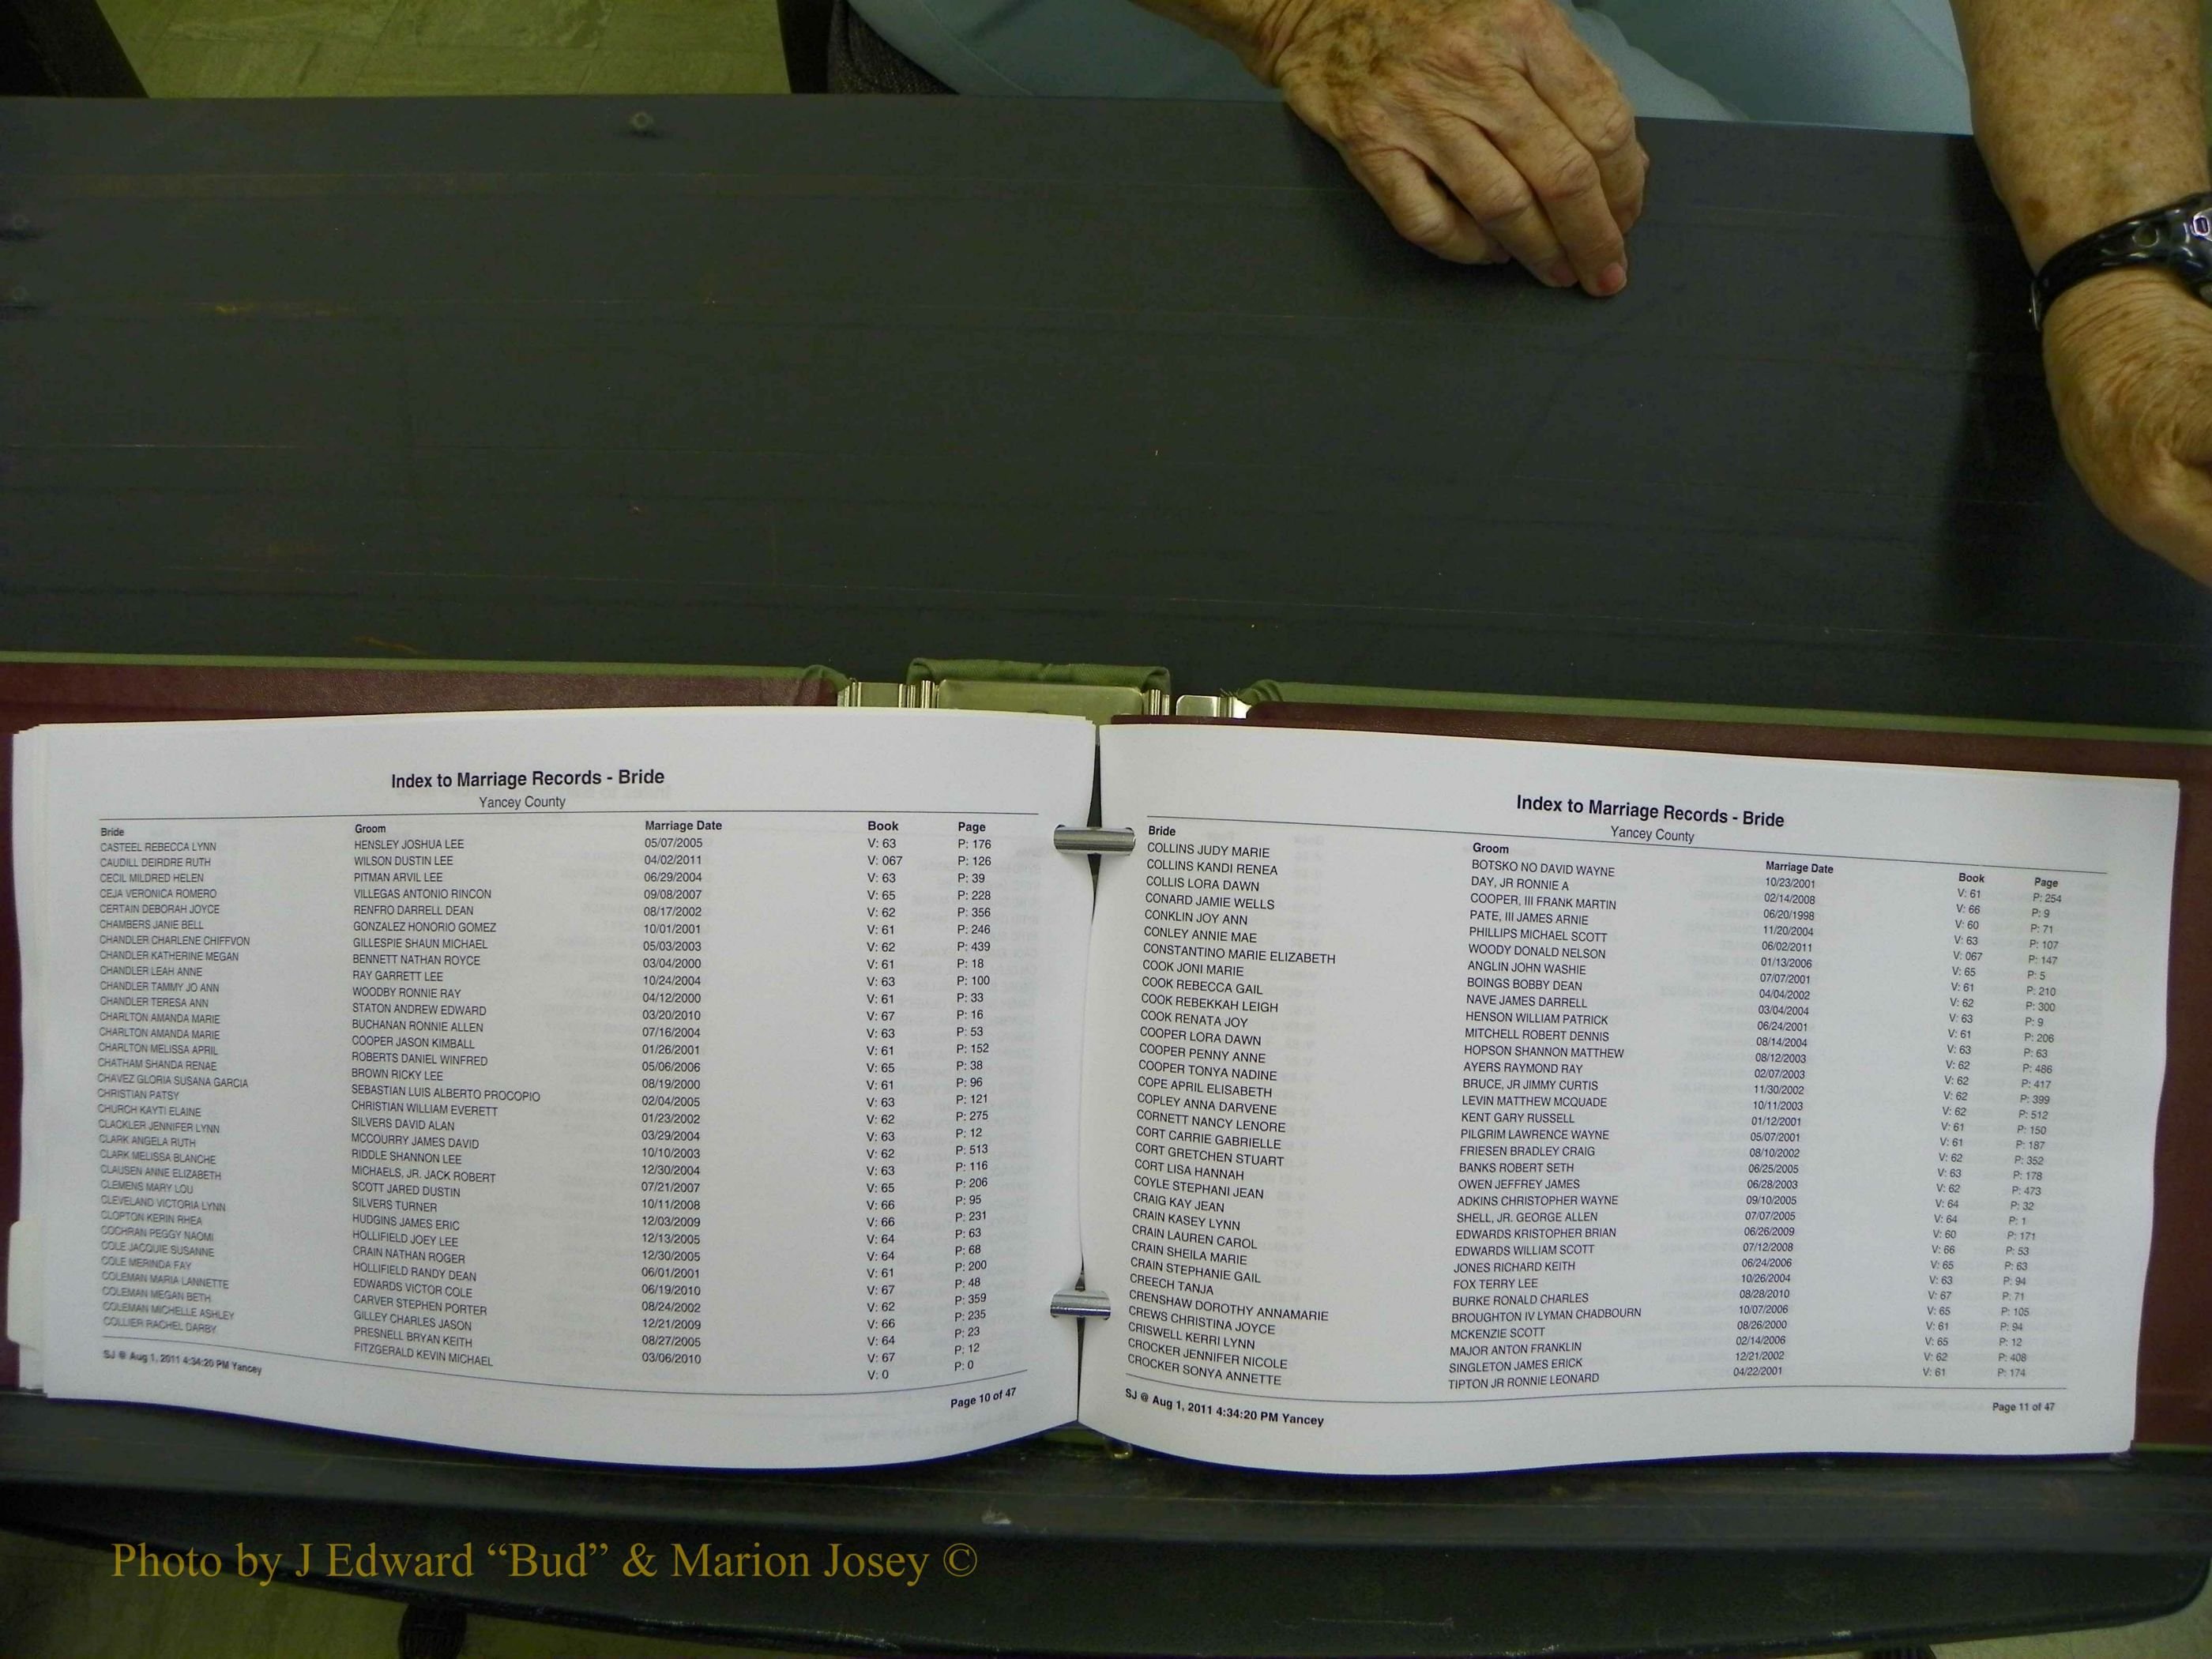 Index to Marriage Records - Bride
Yancey County
Bride Groom Marriage Date Book Page
CASTEEL REBECCA LYNN HENSLEY JOSHUA LEE 05/07/2005 V: 63 P: 176
CAUDILL DEIRDRE RUTH WILSON DUSTIN LEE 04/02/2011 V: 067 P: 126
CECIL MILDRED HELEN PITMAN ARVIL LEE 06/29/2004 V: 63 P: 39
CEJA VERONICA ROMERO VILLEGAS ANTONIO RINCON 09/08/2007 V: 65 P: 228
CERTAIN DEBORAH JOYCE RENFRO DARRELL DEAN 08/17/2002 V: 62 P: 356
CHAMBERS JANIE BELL GONZALEZ HONORIO GOMEZ 10/01/2001 V: 61 P: 246
CHANDLER CHARLENE CHIFFVON GILLESPIE SHAUN MICHAEL 05/03/2003 V: 62 P: 439
CHANDLER KATHERINE MEGAN BENNETT NATHAN ROYCE 03/04/2000 V: 61 P: 18
CHANDLER LEAH ANNE RAY GARRETT LEE 10/24/2004 V: 63 P: 100
CHANDLER TAMMY JO ANN WOODBY RONNIE RAY 04/12/2000 V: 61 P: 33
CHANDLER TERESA ANN STATON ANDREW EDWARD 03/20/2010 V: 67 P: 16
CHARLTON AMANDA MARIE BUCHANAN RONNIE ALLEN 07/16/2004 V: 63 P: 53
CHARLTON AMANDA MARIE COOPER JASON KIMBALL 01/26/2001 V: 61 P: 152
CHARLTON MELISSA APRIL ROBERTS DANIEL WINFRED 05/06/2006 V: 65 P: 38
CHATHAM SHANDA RENAE BROWN RICKY LEE 08/19/2000 V: 61 P: 96
CHAVEZ GLORIA SUSANA GARCIA SEBASTIAN LUIS ALBERTO PROCOPIO 02/04/2005 V: 63 P: 121
CHRISTIAN PATSY CHRISTIAN WILLIAM EVERETT 01/23/2002 V: 62 P: 275
CHURCH KAYTI ELAINE SILVERS DAVID ALAN 03/29/2004 V: 63 P: 12
CLACKLER JENNIFER LYNN MCCOURRY JAMES DAVID 10/10/2003 V: 62 P: 513
CLARK ANGELA RUTH RIDDLE SHANNON LEE 12/30/2004 V: 63 P: 116
CLARK MELISSA BLANCHE MICHAELS, JR. JACK ROBERT 07/21/2007 V: 65 P: 206
CLAUSEN ANNE ELIZABETH SCOTT JARED DUSTIN 10/11/2008 V: 66 P: 95
CLEMENS MARY LOU SILVERS TURNER 12/03/2009 V: 66 P: 231
CLEVELAND VICTORIA LYNN HUDGINS JAMES ERIC 12/13/2005 V: 64 P: 63
CLOPTON KERIN RHEA HOLLIFIELD JOEY LEE 12/30/2005 V: 64 P: 68
COCHRAN PEGGY NAOMI CRAIN NATHAN ROGER 06/01/2001 V: 61 P: 200
COLE JACQUIE SUSANNE HOLLIFIELD RANDY DEAN 06/19/2010 V: 67 P: 48
COLE MERINDA FAY EDWARDS VICTOR COLE 08/24/2002 V: 62 P: 359
COLEMAN MARIA LANNETTE CARVER STEPHEN PORTER 12/21/2009 V: 66 P: 235
COLEMAN MEGAN BETH GILLEY CHARLES JASON 08/27/2005 V: 64 P: 23
COLEMAN MICHELLE ASHLEY PRESNELL BRYAN KEITH 03/06/2010 V: 67 P: 12
COLLIER RACHEL DARBY FITZGERALD KEVIN MICHAEL V: 0 P: 0
SJ @ Aug 1, 2011 4:34:20 PM Yancey Page 10 of 47
Index to Marriage Records - Bride
Yancey County
Bride Groom Marriage Date Book Page
COLLINS JUDY MARIE BOTSKO NO DAVID WAYNE 10/23/2001 V: 61 P: 254
COLLINS KANDI RENEA DAY, JR RONNIE A 02/14/2008 V: 66 P: 9
COLLIS LORA DAWN COOPER, III FRANK MARTIN 06/20/1998 V: 60 P: 71
CONARD JAMIE WELLS PATE, III JAMES ARNIE 11/20/2004 V: 63 P: 107
CONKLIN JOY ANN PHILLIPS MICHAEL SCOTT 06/02/2011 V: 067 P: 147
CONLEY ANNIE MAE WOODY DONALD NELSON 01/13/2006 V: 65 P: 5
CONSTANTINO MARIE ELIZABETH ANGLIN JOHN WASHIE 07/07/2001 V: 61 P: 210
COOK JONI MARIE BOINGS BOBBY DEAN 04/04/2002 V: 62 P: 300
COOK REBECCA GAIL NAVE JAMES DARRELL 03/04/2004 V: 63 P: 9
COOK REBEKKAH LEIGH HENSON WILLIAM PATRICK 06/24/2001 V: 61 P: 206
COOK RENATA JOY MITCHELL ROBERT DENNIS 08/14/2004 V: 63 P: 63
COOPER LORA DAWN HOPSON SHANNON MATTHEW 08/12/2003 V: 62 P: 486
COOPER PENNY ANNE AYERS RAYMOND RAY 02/07/2003 V: 62 P: 417
COOPER TONYA NADINE BRUCE, JR JIMMY CURTIS 11/30/2002 V: 62 P: 399
COPE APRIL ELISABETH LEVIN MATTHEW MCQUADE 10/11/2003 V: 62 P: 512
COPLEY ANNA DARVENE KENT GARY RUSSELL 01/12/2001 V: 61 P: 150
CORNETT NANCY LENORE PILGRIM LAWRENCE WAYNE 05/07/2001 V: 61 P: 187
CORT CARRIE GABRIELLE FRIESEN BRADLEY CRAIG 08/10/2002 V: 62 P: 352
CORT GRETCHEN STUART BANKS ROBERT SETH 06/25/2005 V: 63 P: 178
CORT LISA HANNAH OWEN JEFFREY JAMES 06/28/2003 V: 62 P: 473
COYLE STEPHANI JEAN ADKINS CHRISTOPHER WAYNE 09/10/2005 V: 64 P: 32
CRAIG KAY JEAN SHELL, JR. GEORGE ALLEN 07/07/2005 V: 64 P: 1
CRAIN KASEY LYNN EDWARDS KRISTOPHER BRIAN 06/26/2009 V: 60 P: 171
CRAIN LAUREN CAROL EDWARDS WILLIAM SCOTT 07/12/2008 V: 66 P: 53
CRAIN SHEILA MARIE JONES RICHARD KEITH 06/24/2006 V: 65 P: 63
CRAIN STEPHANIE GAIL FOX TERRY LEE 10/26/2004 V: 63 P: 94
CREECH TANJA BURKE RONALD CHARLES 08/28/2010 V: 67 P: 71
CRENSHAW DOROTHY ANNAMARIE BROUGHTON IV LYMAN CHADBOURN 10/07/2006 V: 65 P: 105
CREWS CHRISTINA JOYCE MCKENZIE SCOTT 08/26/2000 V: 61 P: 94
CRISWELL KERRI LYNN MAJOR ANTON FRANKLIN 02/14/2006 V: 65 P: 12
CROCKER JENNIFER NICOLE SINGLETON JAMES ERICK 12/21/2002 V: 62 P: 408
CROCKER SONYA ANNETTE TIPTON JR RONNIE LEONARD 04/22/2001 V: 61 P: 174
SJ @ Aug 1, 2011 4:34:20 PM Yancey Page 11 of 47
Photo by J Edward “Bud” & Marion Josey ©